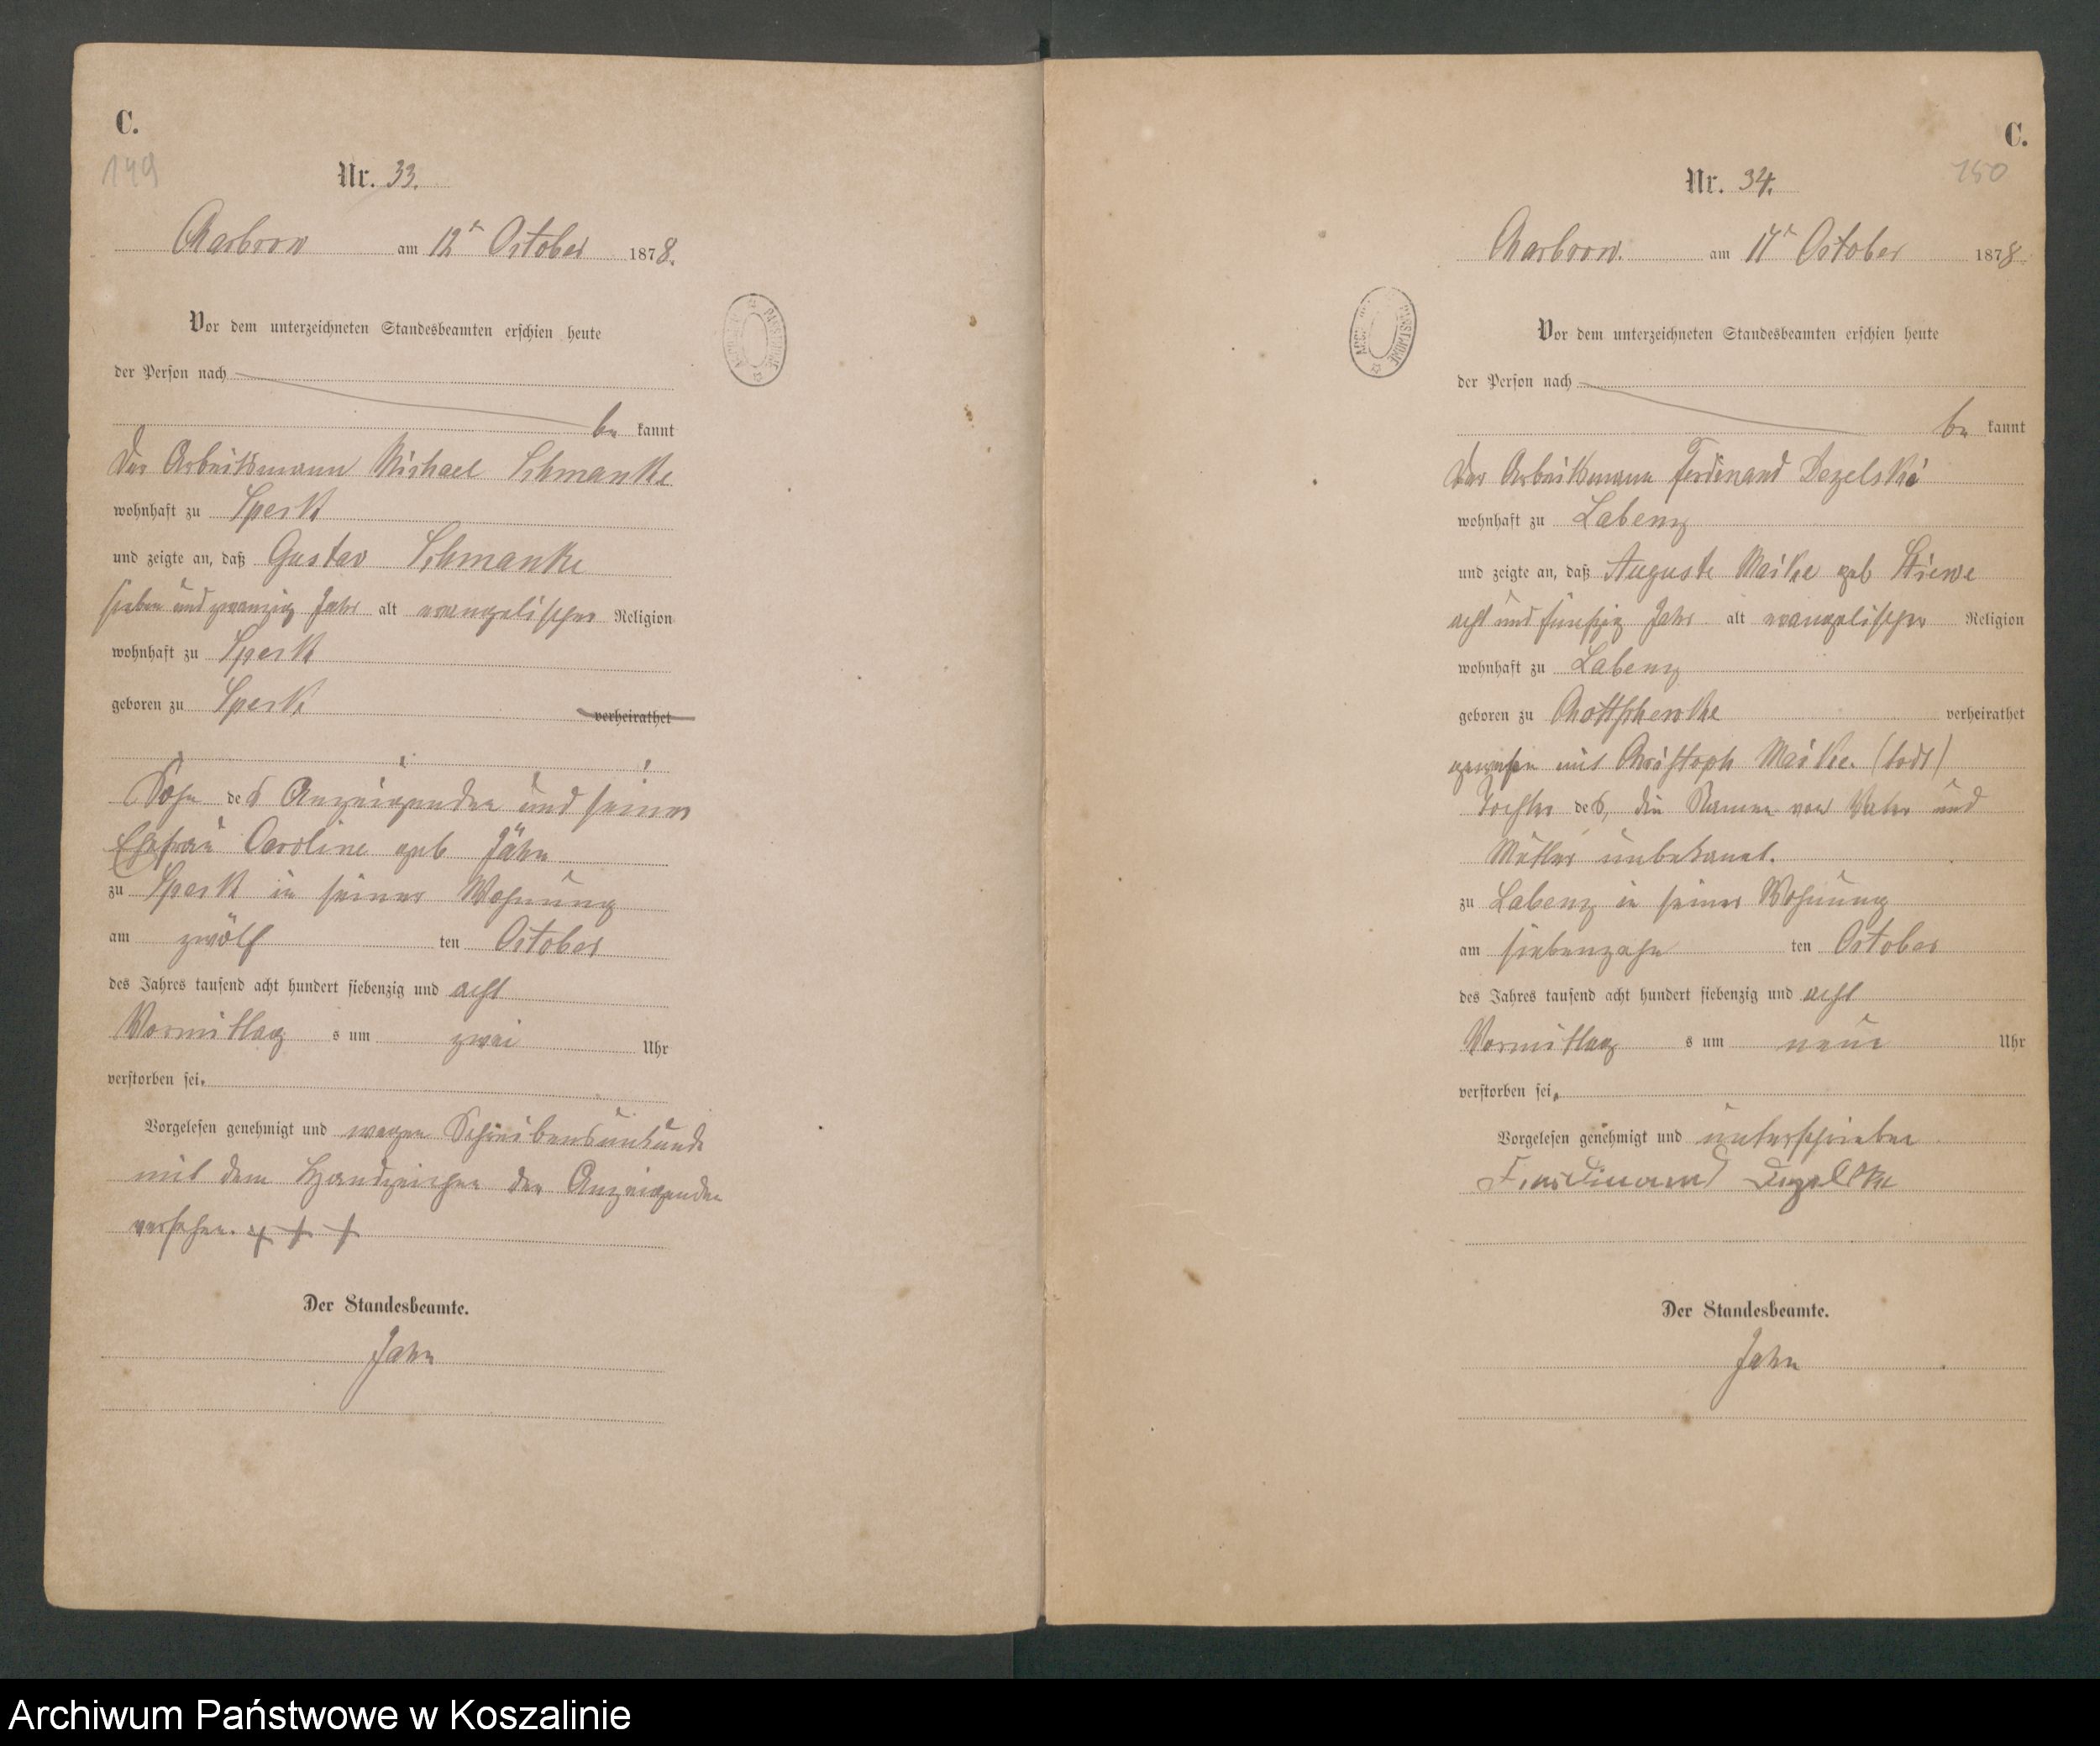 C.
149
Nr. 33.
Charbrow am 12ⁿ October 1878.
Vor dem unterzeichneten Standesbeamten erschien heute
der Person nach
be kannt
Der Arbeitsmann Michael Schmanke
wohnhaft zu Speck
und zeigte an, daß Gustav Schmanke
sieben und zwanzig Jahr alt evangelischer Religion
wohnhaft zu Speck
geboren zu Speck verheirathet
Sohn des Anzeigenden und seiner
Ehefrau Caroline geb Jähn
zu Speck in seiner Wohnung
am zwölf ten October
des Jahres tausend acht hundert siebenzig und acht
Vormittag s um zwei Uhr
verstorben sei.
Vorgelesen genehmigt und wegen Schreibensunkunde
mit dem Handzeichen des Anzeigenden
versehen. + + +
Der Standesbeamte.
Jahn
C.
150
Nr. 34.
Charbrow. am 17ⁿ October 1878
Vor dem unterzeichneten Standesbeamten erschien heute
der Person nach
be kannt
Der Arbeitsmann Ferdinand Dezelski
wohnhaft zu Labenz
und zeigte an, daß Auguste Maike geb Stiewe
acht und fünfzig Jahr alt evangelischer Religion
wohnhaft zu Labenz
geboren zu verheirathet
gewesen mit Christoph Maike. (todt)
Tochter des, die Namen von Vater und
Mutter unbekannt.
zu Labenz in seiner Wohnung
am siebenzehn ten October
des Jahres tausend acht hundert siebenzig und acht
Vormittag s um neun Uhr
verstorben sei.
Vorgelesen genehmigt und unterschrieben
Ferdinand
Der Standesbeamte.
Jahn
Archiwum Państwowe w Koszalinie